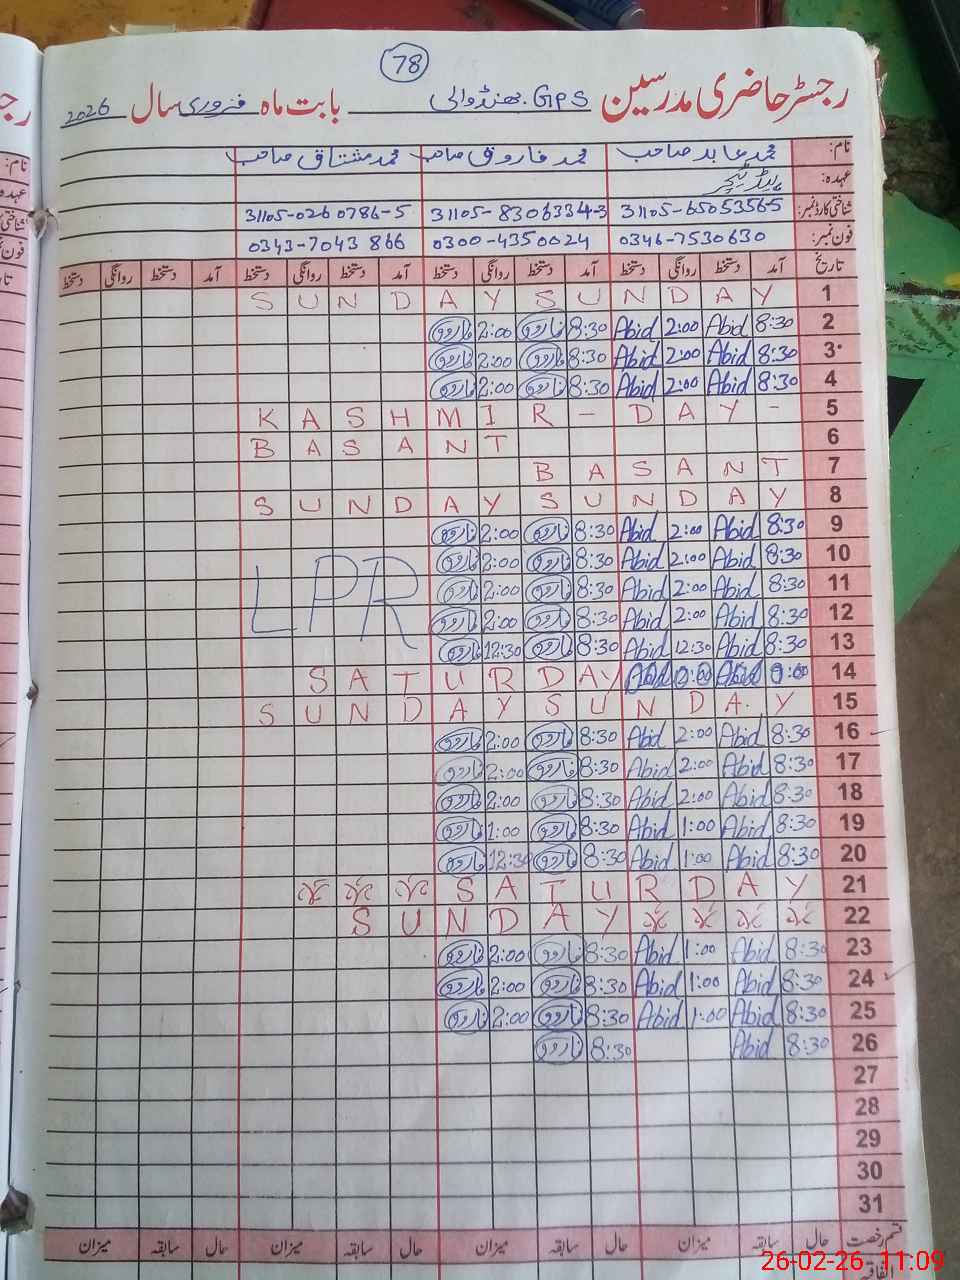 78
رجسٹر حاضری مدرسین GPS بھنڈوالی بابت ماہ فروری سال 2026
نام: محمد عابد صاحب محمد فاروق صاحب محمد مشتاق صاحب
عہدہ: ہیڈ ٹیچر
شناختی کارڈ نمبر: 31105-6505356-5 31105-8306334-3 31105-0260786-5
فون نمبر: 0346-7530630 0300-4350024 0343-7043866
تاریخ آمد دستخط روانگی دستخط آمد دستخط روانگی دستخط آمد دستخط روانگی دستخط آمد دستخط روانگی دستخط
S U N D A Y S U N D A Y 1
فاروق 2:00 فاروق 8:30 Abid 2:00 Abid 8:30 2
فاروق 2:00 فاروق 8:30 Abid 2:00 Abid 8:30 3
فاروق 2:00 فاروق 8:30 Abid 2:00 Abid 8:30 4
K A S H M I R - D A Y - 5
B A S A N T 6
B A S A N T 7
S U N D A Y S U N D A Y 8
فاروق 2:00 فاروق 8:30 Abid 2:00 Abid 8:30 9
فاروق 2:00 فاروق 8:30 Abid 2:00 Abid 8:30 10
LPR فاروق 2:00 فاروق 8:30 Abid 2:00 Abid 8:30 11
فاروق 2:00 فاروق 8:30 Abid 2:00 Abid 8:30 12
فاروق 12:30 فاروق 8:30 Abid 12:30 Abid 8:30 13
S A T U R D A Y 14
S U N D A Y S U N D A Y 15
فاروق 2:00 فاروق 8:30 Abid 2:00 Abid 8:30 16
فاروق 2:00 فاروق 8:30 Abid 2:00 Abid 8:30 17
فاروق 2:00 فاروق 8:30 Abid 2:00 Abid 8:30 18
فاروق 1:00 فاروق 8:30 Abid 1:00 Abid 8:30 19
فاروق 12:30 فاروق 8:30 Abid 1:00 Abid 8:30 20
S A T U R D A Y 21
S U N D A Y 22
فاروق 2:00 فاروق 8:30 Abid 1:00 Abid 8:30 23
فاروق 2:00 فاروق 8:30 Abid 1:00 Abid 8:30 24
فاروق 2:00 فاروق 8:30 Abid 1:00 Abid 8:30 25
فاروق 8:30 Abid 8:30 26
27
28
29
30
31
قسم رخصت حال سابقہ میزان حال سابقہ میزان حال سابقہ میزان حال سابقہ میزان
اتفاقیہ
26-02-26 11:09